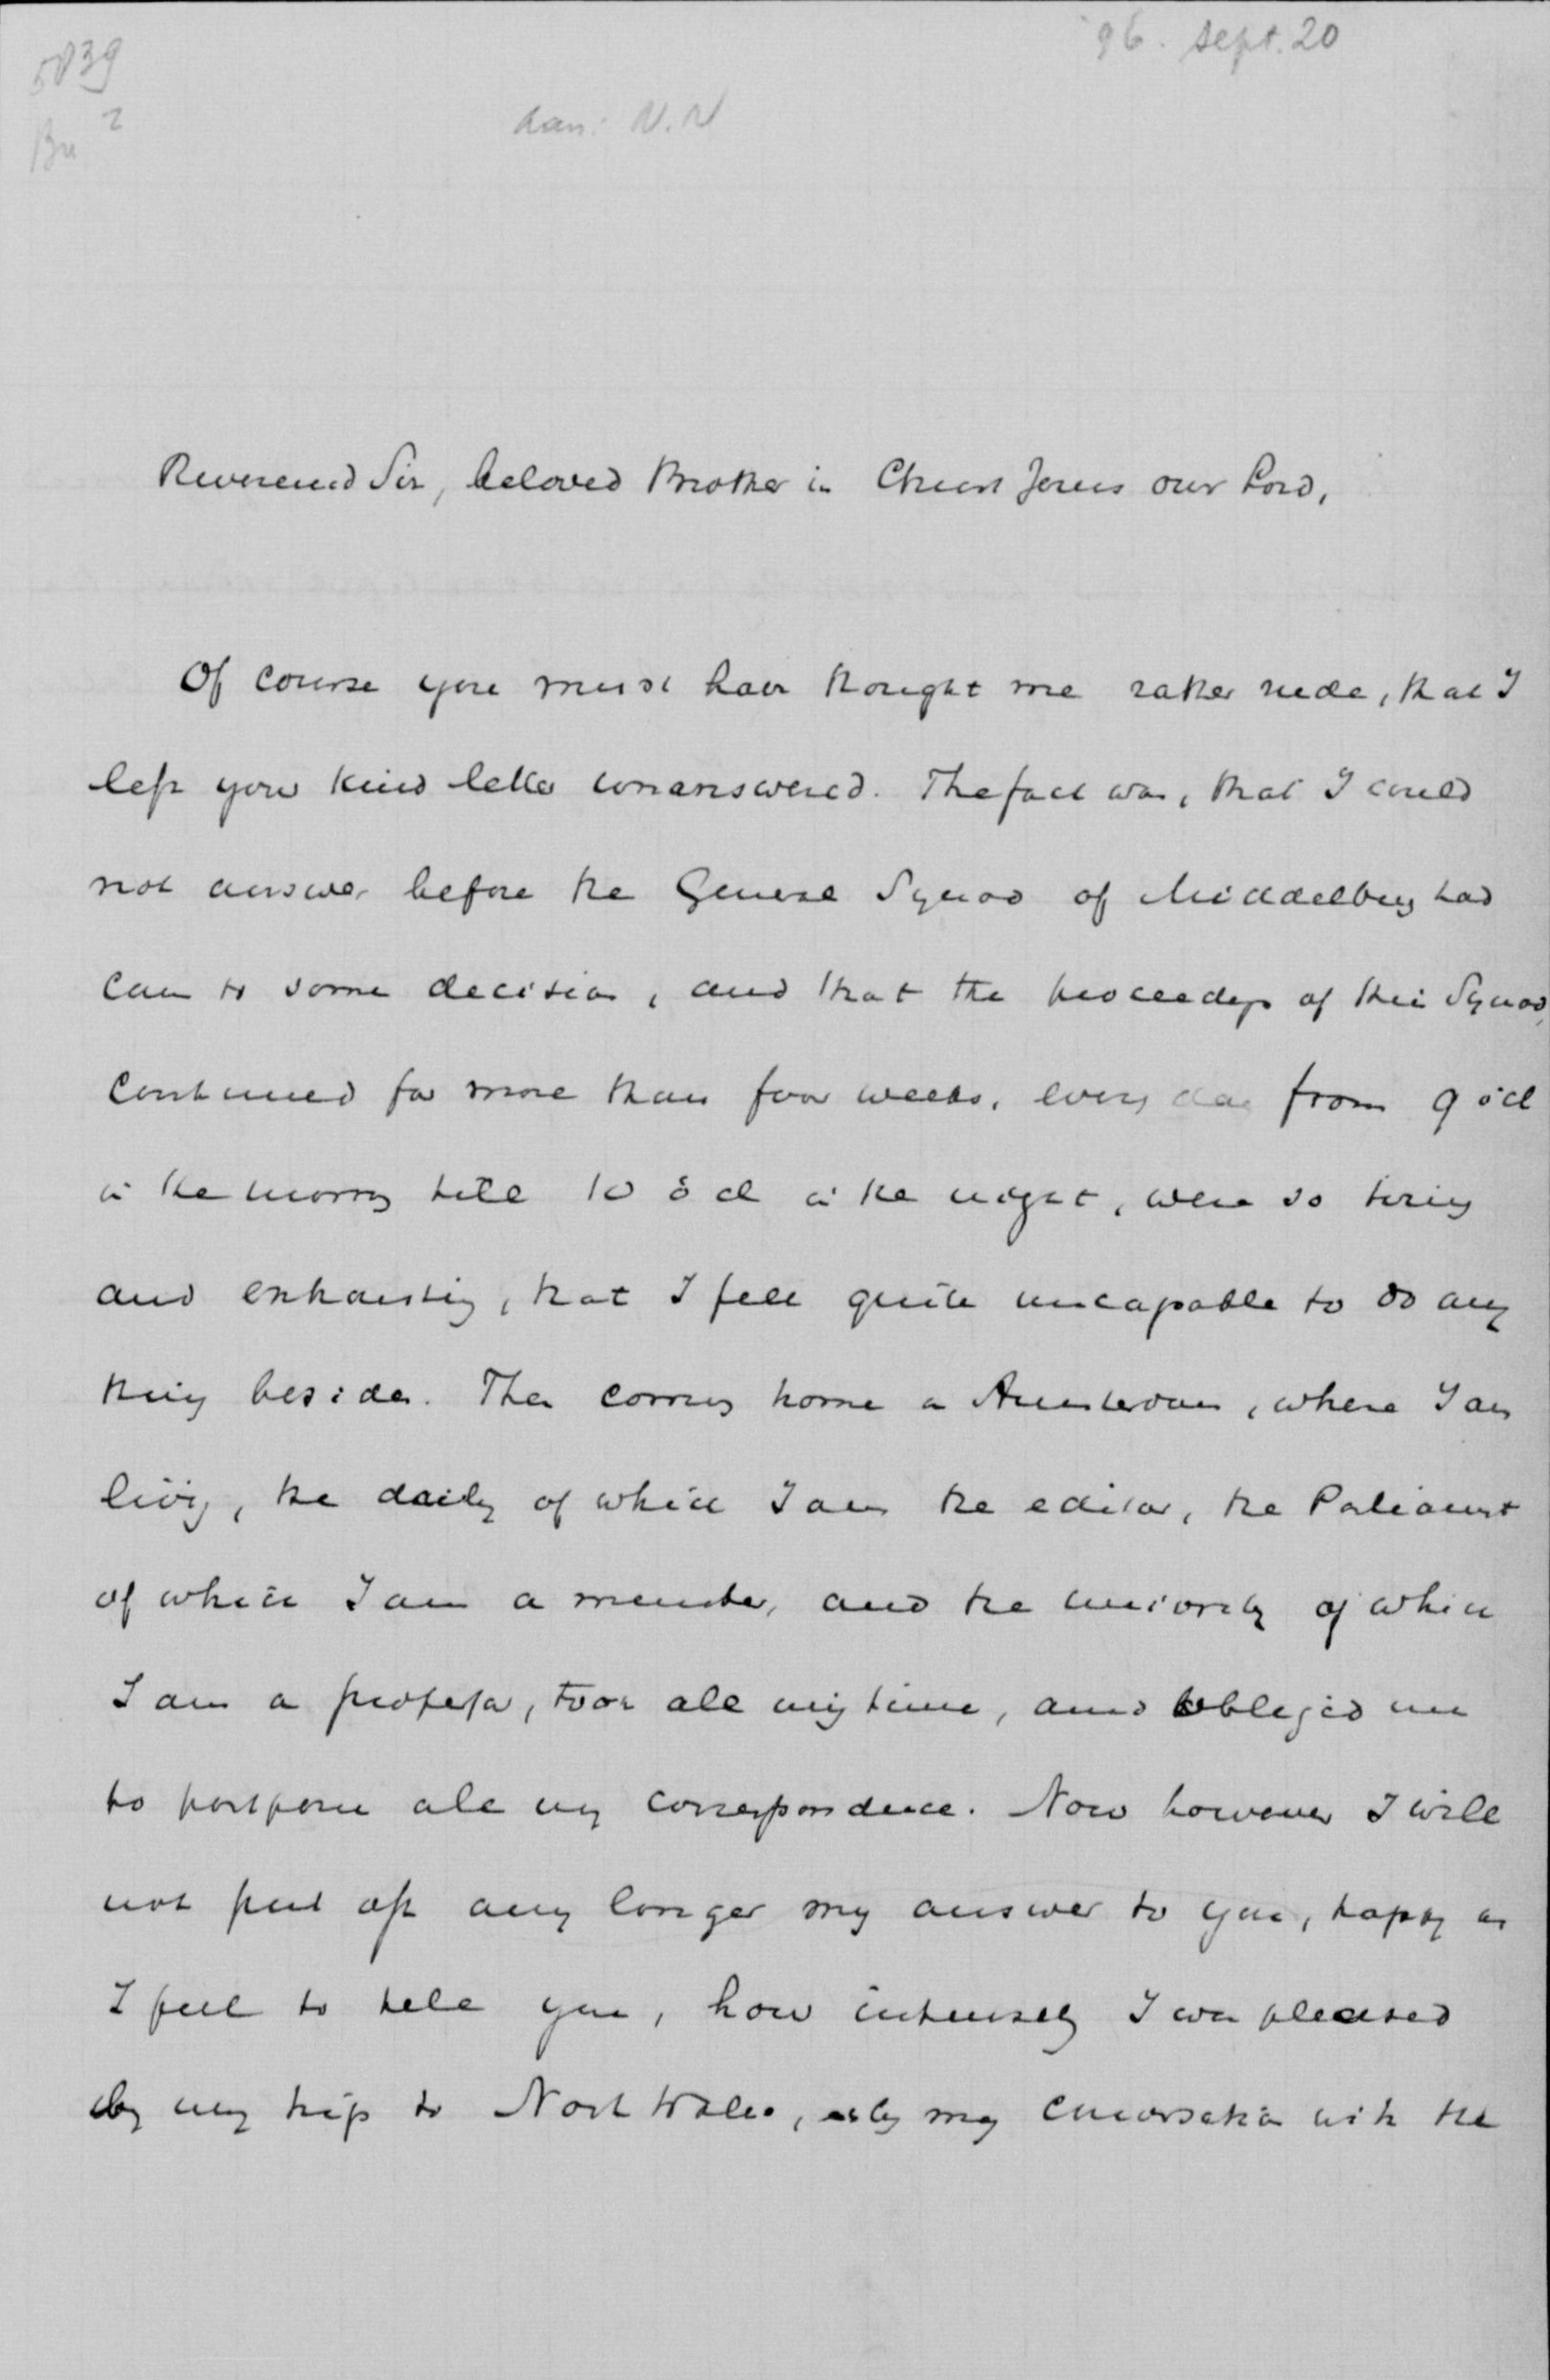 5839
Bu 2
'96. Sept. 20
aan: N.N
Reverend Sir, beloved Brother in Christ Jesus our Lord,
Of course you must have thought me rather rude, that I
left your kind letter unanswered. The fact was, that I could
not answer before the General Synod of Middelburg had
came to some decision, and that the proceedings of this Synod,
continued for more than four weeks, every day from 9 o'cl
in the morning till 10 o'cl in the night, were so tiring
and exhausting, that I felt quite uncapable to do any
thing besides. Then coming home in Amsterdam, where I am
living, the daily of which I am the editor, the Parliament
of which I am a member, and the university of which
I am a professor, took all my time, and obliged me
to postpone all my correspondence. Now however I will
not put off any longer my answer to you, happy as
I feel to tell you, how intensely I was pleased
by my trip to North Wales, as by my conversation with the